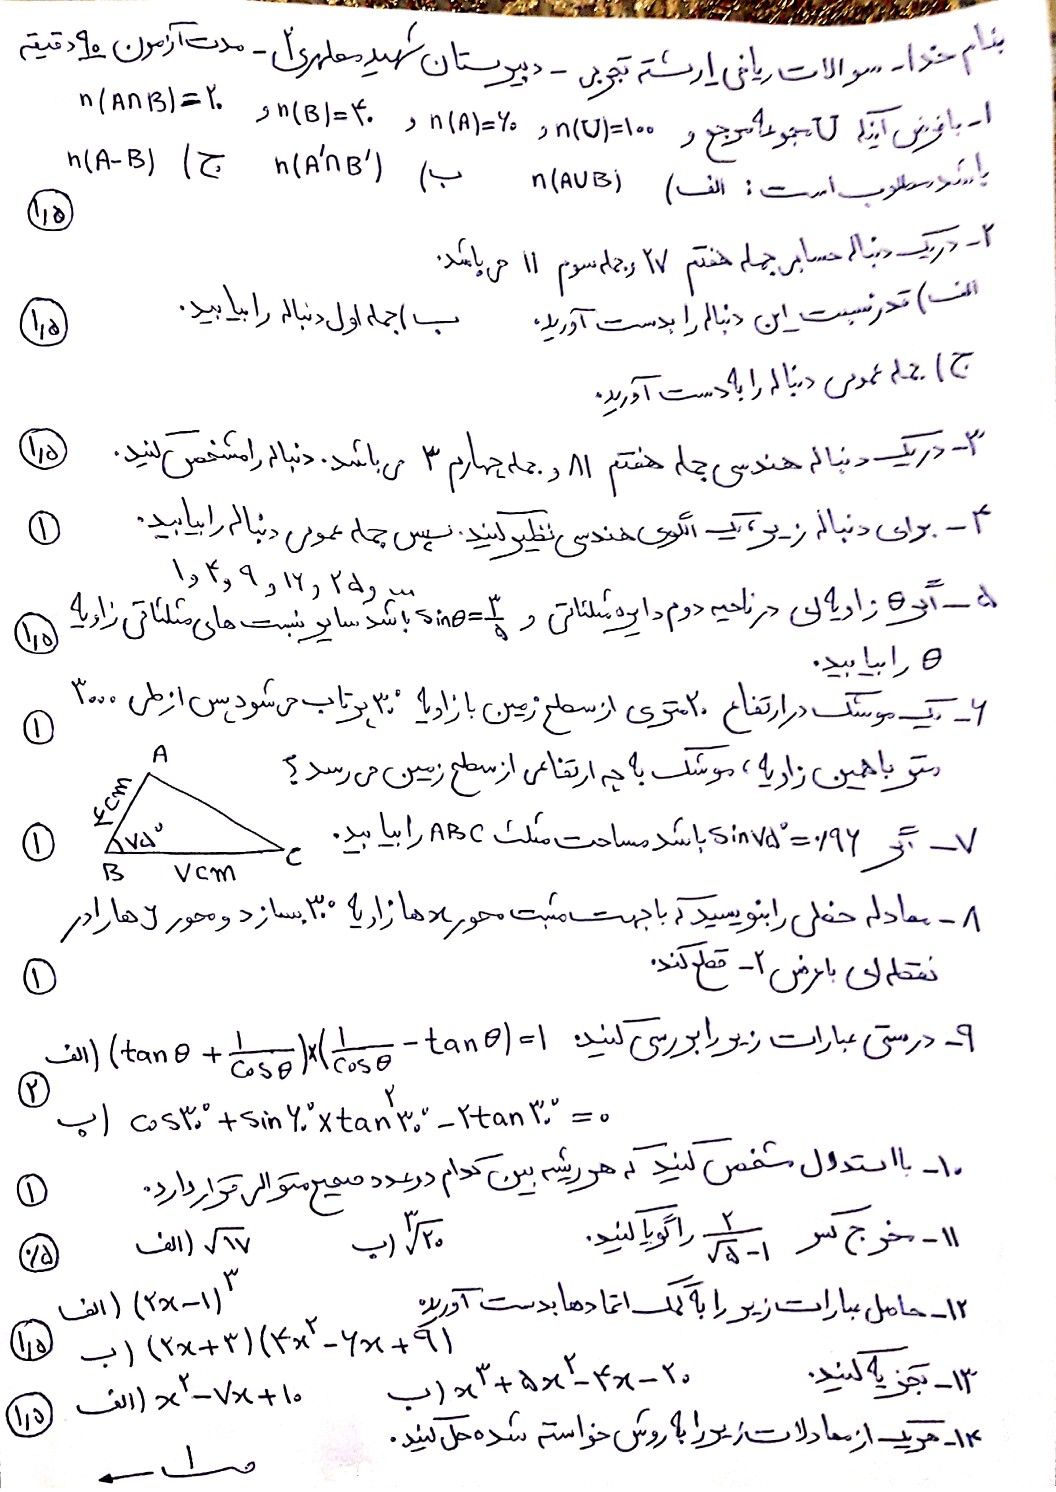 بنام خدا - سوالات ریاضی ۱ رشته تجربی - دبیرستان شهید مطهری ۲ - مدت آزمون ۹۰ دقیقه
۱- با فرض آنکه U مجموعه مرجع و n(U)=۱۰۰ و n(A)=۶۰ و n(B)=۴۰ و n(A∩B)=۲۰
باشد مطلوب است: الف) n(A∪B) ب) n(A′∩B′) ج) n(A-B)
۱٫۵
۲- در یک دنباله حسابی جمله هفتم ۲۷ و جمله سوم ۱۱ می باشد.
الف) قدر نسبت این دنباله را بدست آورید. ب) جمله اول دنباله را بیابید.
۱٫۵
ج) جمله عمومی دنباله را به دست آورید.
۳- در یک دنباله هندسی جمله هفتم ۸۱ و جمله چهارم ۳ می باشد. دنباله را مشخص کنید. ۱٫۵
۴- برای دنباله زیر، یک الگوی هندسی نظیر کنید. سپس جمله عمومی دنباله را بیابید. ۱
۱ و ۴ و ۹ و ۱۶ و ۲۵ و ...
۵- اگر θ زاویه ای در ناحیه دوم دایره مثلثاتی و sinθ=۳/۵ باشد سایر نسبت های مثلثاتی زاویه ۱٫۵
θ را بیابید.
۶- یک موشک در ارتفاع ۲۰ متری از سطح زمین با زاویه ۳۰° پرتاب می شود پس از طی ۳۰۰۰ ۱
متر با همین زاویه، موشک به چه ارتفاعی از سطح زمین می رسد؟
A
۴cm
۷- اگر sin۷۵°=۰/۹۶ باشد مساحت مثلث ABC را بیابید. ۱
۷۵°
B ۷cm C
۸- معادله خطی را بنویسید که با جهت مثبت محور xها زاویه ۳۰° بسازد و محور yها را در
نقطه ای با عرض ۲- قطع کند. ۱
۹- درستی عبارات زیر را بررسی کنید. الف) (tanθ + ۱/cosθ)×(۱/cosθ - tanθ)=۱
۲
ب) cos۳۰°+sin۶۰°×tan²۳۰°-۲tan۳۰°=۰
۱۰- با استدلال مشخص کنید که هر ریشه بین کدام دو عدد صحیح متوالی قرار دارد. ۱
الف) √۱۷ ب) ³√۲۰
۱۱- مخرج کسر ۲/(√۵-۱) را گویا کنید. ۰/۵
۱۲- حاصل عبارات زیر را به کمک اتحادها بدست آورید. الف) (۲x-۱)³
ب) (۲x+۳)(۴x²-۶x+۹) ۱٫۵
۱۳- تجزیه کنید. الف) x²-۷x+۱۰ ب) x³+۵x²-۴x-۲۰ ۱٫۵
۱۴- هر یک از معادلات زیر را به روش خواسته شده حل کنید.
ص ۱